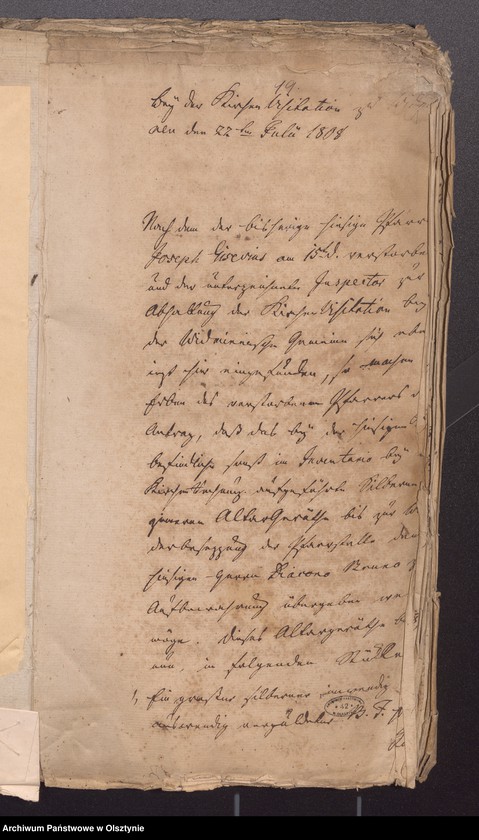 19.
Bey der Kirchen Visitation zu
den 22ten July 1808
Nach dem der bisherige hiesige Pfarr
Joseph Gisevius am 15t. d. verstorbe
und der unterzeichnete Inspector zur
Abhaltung der Kirchen Visitation bey
der Gemeine sich eben
jezt hier eingefunden, so machen
Erben des verstorbenen Pfarrers d
Antrag, daß das bey der hiesigen
befindliche sonst im Inventario bey
Kirchen aufgeführte Silberne
AltarGeräthe bis zur
derbesetzung der Pfarrstelle dem
hiesigen Herrn Diacono
Aufbewahrung übergeben we
möge. Dieses Altargeräthe b
nun, in folgenden Stükke
1, Ein großer silberner inwendig
auswendig vergüldeter B. F.
Archiwum Państwowe w Olsztynie